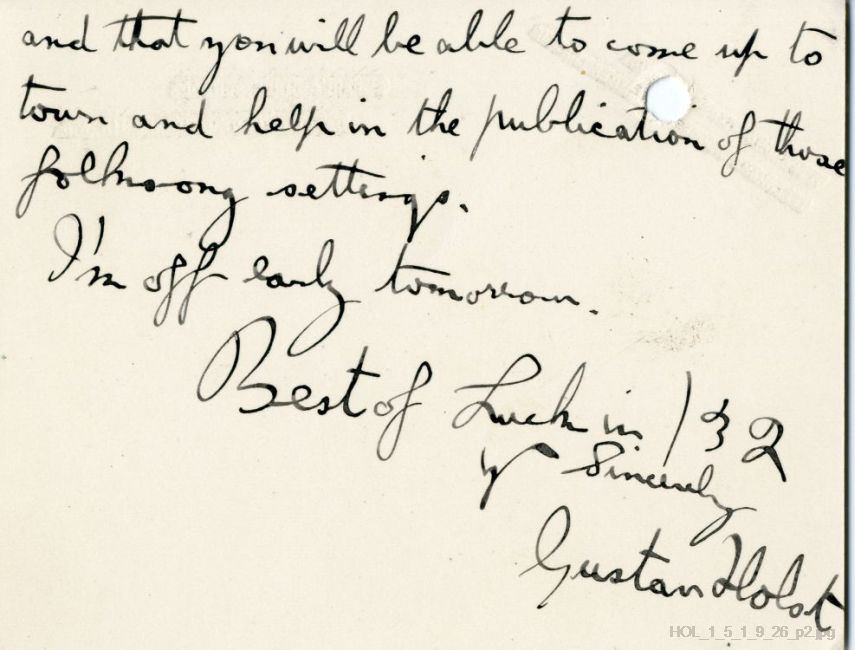 and that you will be able to come up to
town and help in the publication of those
folksong settings.
I'm off early tomorrow.
Best of Luck in 1932
Yrs Sincerely
Gustav Holst
HOL_1_5_1_9_26_p2.jpg